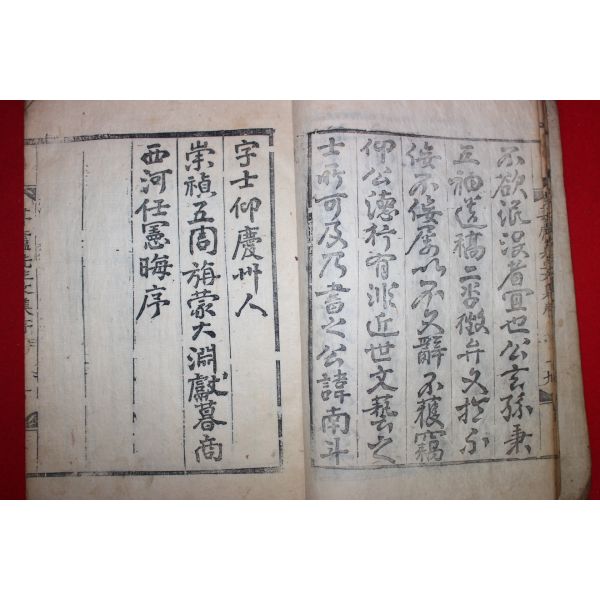 不欲泯沒者宜也公玄孫秉
五袖遺稿二卷徵弁文於不
侫不侫屢以不文辭不獲竊
仰公德行有非近世文藝之
士所可及乃書之公諱南斗
字士仰慶州人
崇禎五周旃蒙大淵獻暮商
西河任憲晦序